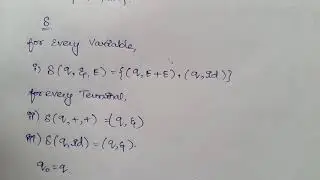 δ
for every Variable,
i) δ(q, ξ, E) = {(q, E+E), (q, id)}
for every Terminal,
ii) δ(q, +, +) = (q, ξ)
iii) δ(q, id) = (q, ξ).
q₀ = q